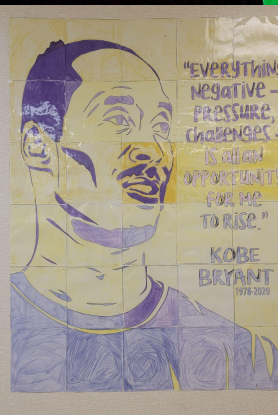 "EVERYTHING
Negative -
PRESSURE,
CHALLENGES -
IS all AN
OPPORTUNITY
FOR ME
TO RISE."
KOBE
BRYANT
1978-2020